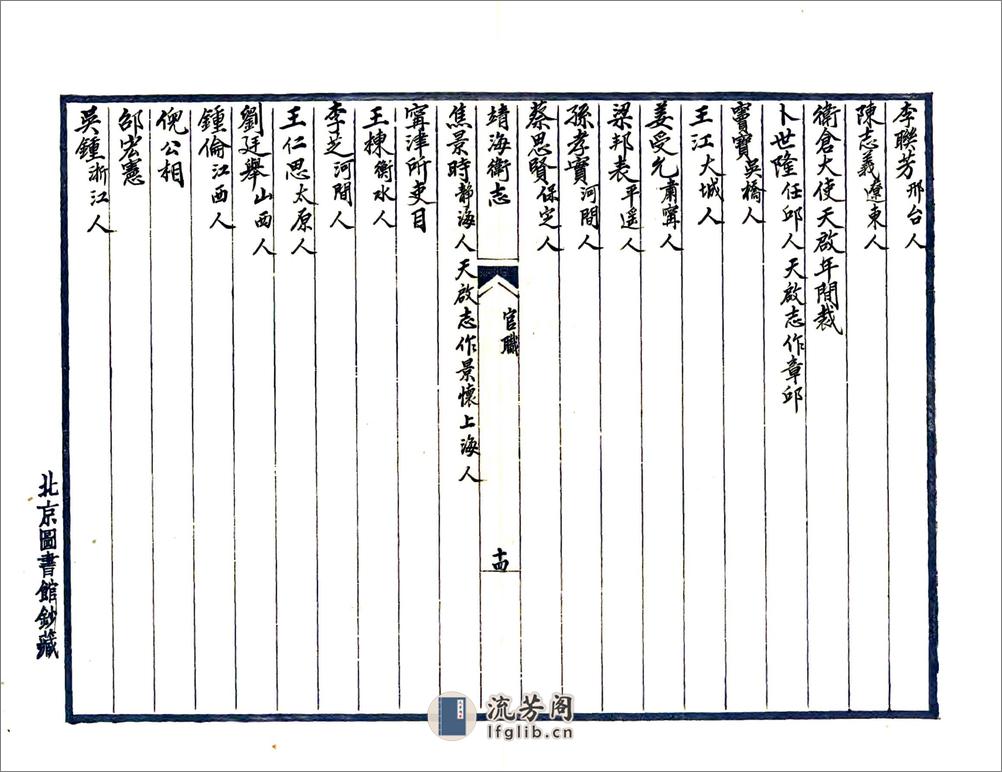 李聯芳邢台人
陳志義遼東人
衛倉大使天啟年間裁
卜世隆任邱人天啟志作章邱
竇寶吳橋人
王江大城人
姜受允肅寧人
梁邦表平遥人
孫孝實河間人
蔡思賢保定人
靖海衛志
官職
十四
焦景時靜海人天啟志作景懷上海人
寧津所吏目
王棟衡水人
李芝河間人
王仁思太原人
劉廷舉山西人
鍾倫江西人
倪公相
邵宏憲
吳鍾浙江人
北京圖書館鈔藏
流芳阁
lfglib.cn